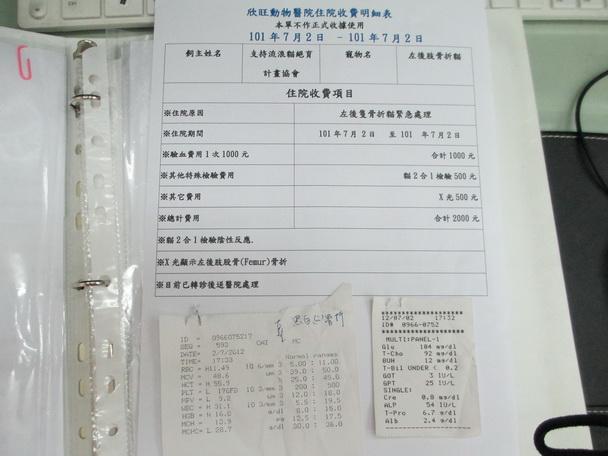 欣旺動物醫院住院收費明細表
本單不作正式收據使用
101 年 7 月 2 日 - 101 年 7 月 2 日
飼主姓名 支持流浪貓絕育計畫協會 寵物名 左後肢骨折貓
住院收費項目
※住院原因 左後隻骨折貓緊急處理
※住院期間 101 年 7 月 2 日 至 101 年 7 月 2 日
※驗血費用 1 次 1000 元 合計 1000 元
※其他特殊檢驗費用 貓 2 合 1 檢驗 500 元
※其它費用 X 光 500 元
※總計費用 合計 2000 元
※貓 2 合 1 檢驗陰性反應.
※X 光顯示左後肢股骨(Femur)骨折
※目前已轉診後送醫院處理
ID = 0966075217
SEQ = 593 CAT MC
DATE= 2/7/2012
TIME= 17:33 Normal ranges
RBC = H11.49 10 6/mm 3 5.00 : 11.00
MCV = 48.6 um 3 39.0 : 50.0
HCT = H 55.9 % 25.0 : 45.0
PLT = L 176FD 10 3/mm 3 200 : 500
MPV = L 9.2 um 3 12.0 : 18.0
WBC = H 31.1 10 3/mm 3 5.5 : 19.5
HGB = H 16.0 g/dl 8.0 : 15.0
MCH = 13.9 pg 12.5 : 17.5
MCHC= L 28.7 g/dl 30.0 : 36.0
12/07/02 17:32
ID# 0966-0752
MULTI:PANEL-1
Glu 184 mg/dl
T-Cho 92 mg/dl
BUN 12 mg/dl
T-Bil UNDER < 0.2
GOT 3 IU/L
GPT 25 IU/L
SINGLE:
Cre 0.8 mg/dl
ALP 54 IU/L
T-Pro 6.7 g/dl
Alb 2.4 g/dl